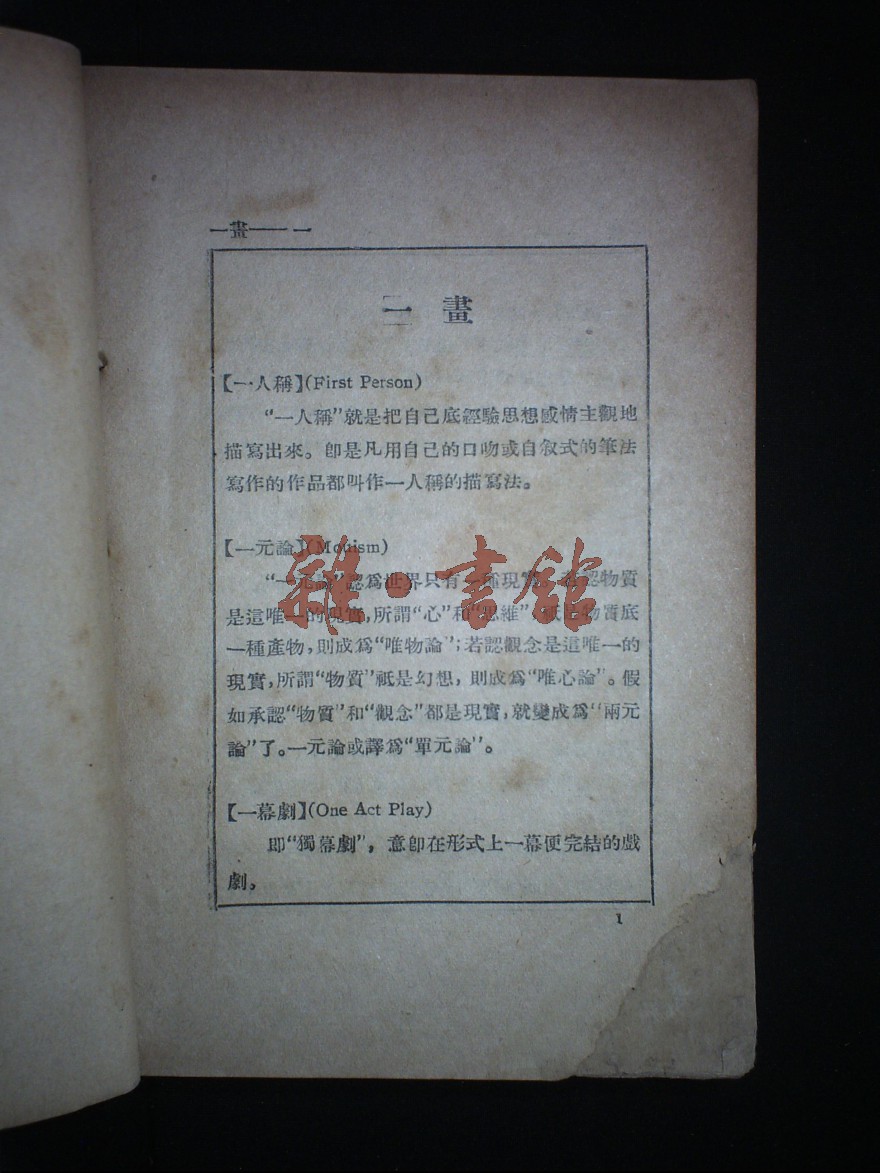 一畫——一
一畫
【一人稱】(First Person)
“一人稱”就是把自己底經驗思想感情主觀地
描寫出來。卽是凡用自己的口吻或自敘式的筆法
寫作的作品都叫作一人稱的描寫法。
【一元論】(Monism)
“一元論”認爲世界只有一種現實。若認物質
是這唯一的現實,所謂“心”和“思維”祇是物質底
一種產物,則成爲“唯物論”;若認觀念是這唯一的
現實,所謂“物質”祇是幻想,則成爲“唯心論”。假
如承認“物質”和“觀念”都是現實,就變成爲“兩元
論”了。一元論或譯爲“單元論”。
【一幕劇】(One Act Play)
即“獨幕劇”,意卽在形式上一幕便完結的戲
劇,
1
雜·書館